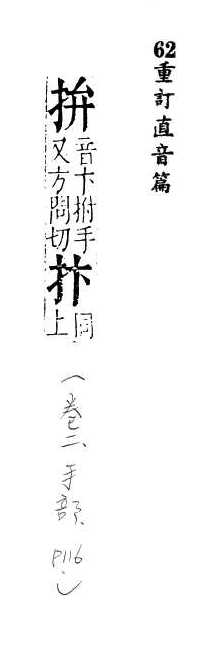 62重訂直音篇
拚音卞拊手又方問切抃同上
（卷二、手部、P.116.）